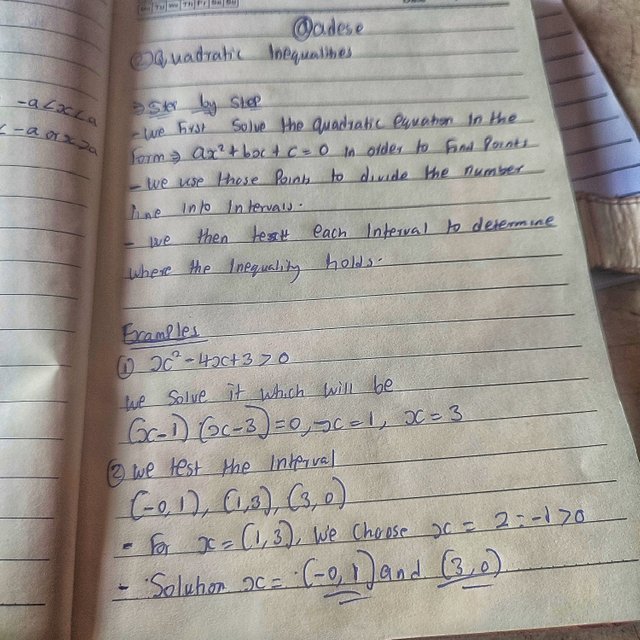 Mo Tu We Th Fr Sa Su
@adese
② Quadratic Inequalities
-a<x<a
< -a or x>a
⇒ Step by Step
- We First Solve the quadratic equation in the
form ⇒ ax²+bx+c=0 in order to Find Points
- We use those Points to divide the number
line into Intervals.
- We then test each Interval to determine
where the Inequality holds.
Examples
① x²-4x+3>0
We Solve it which will be
(x-1)(x-3)=0, x=1, x=3
② We test the Interval
(-0,1), (1,3), (3,0)
- For x=(1,3), We Choose x=2:-1>0
- Solution x=(-0,1) and (3,0)